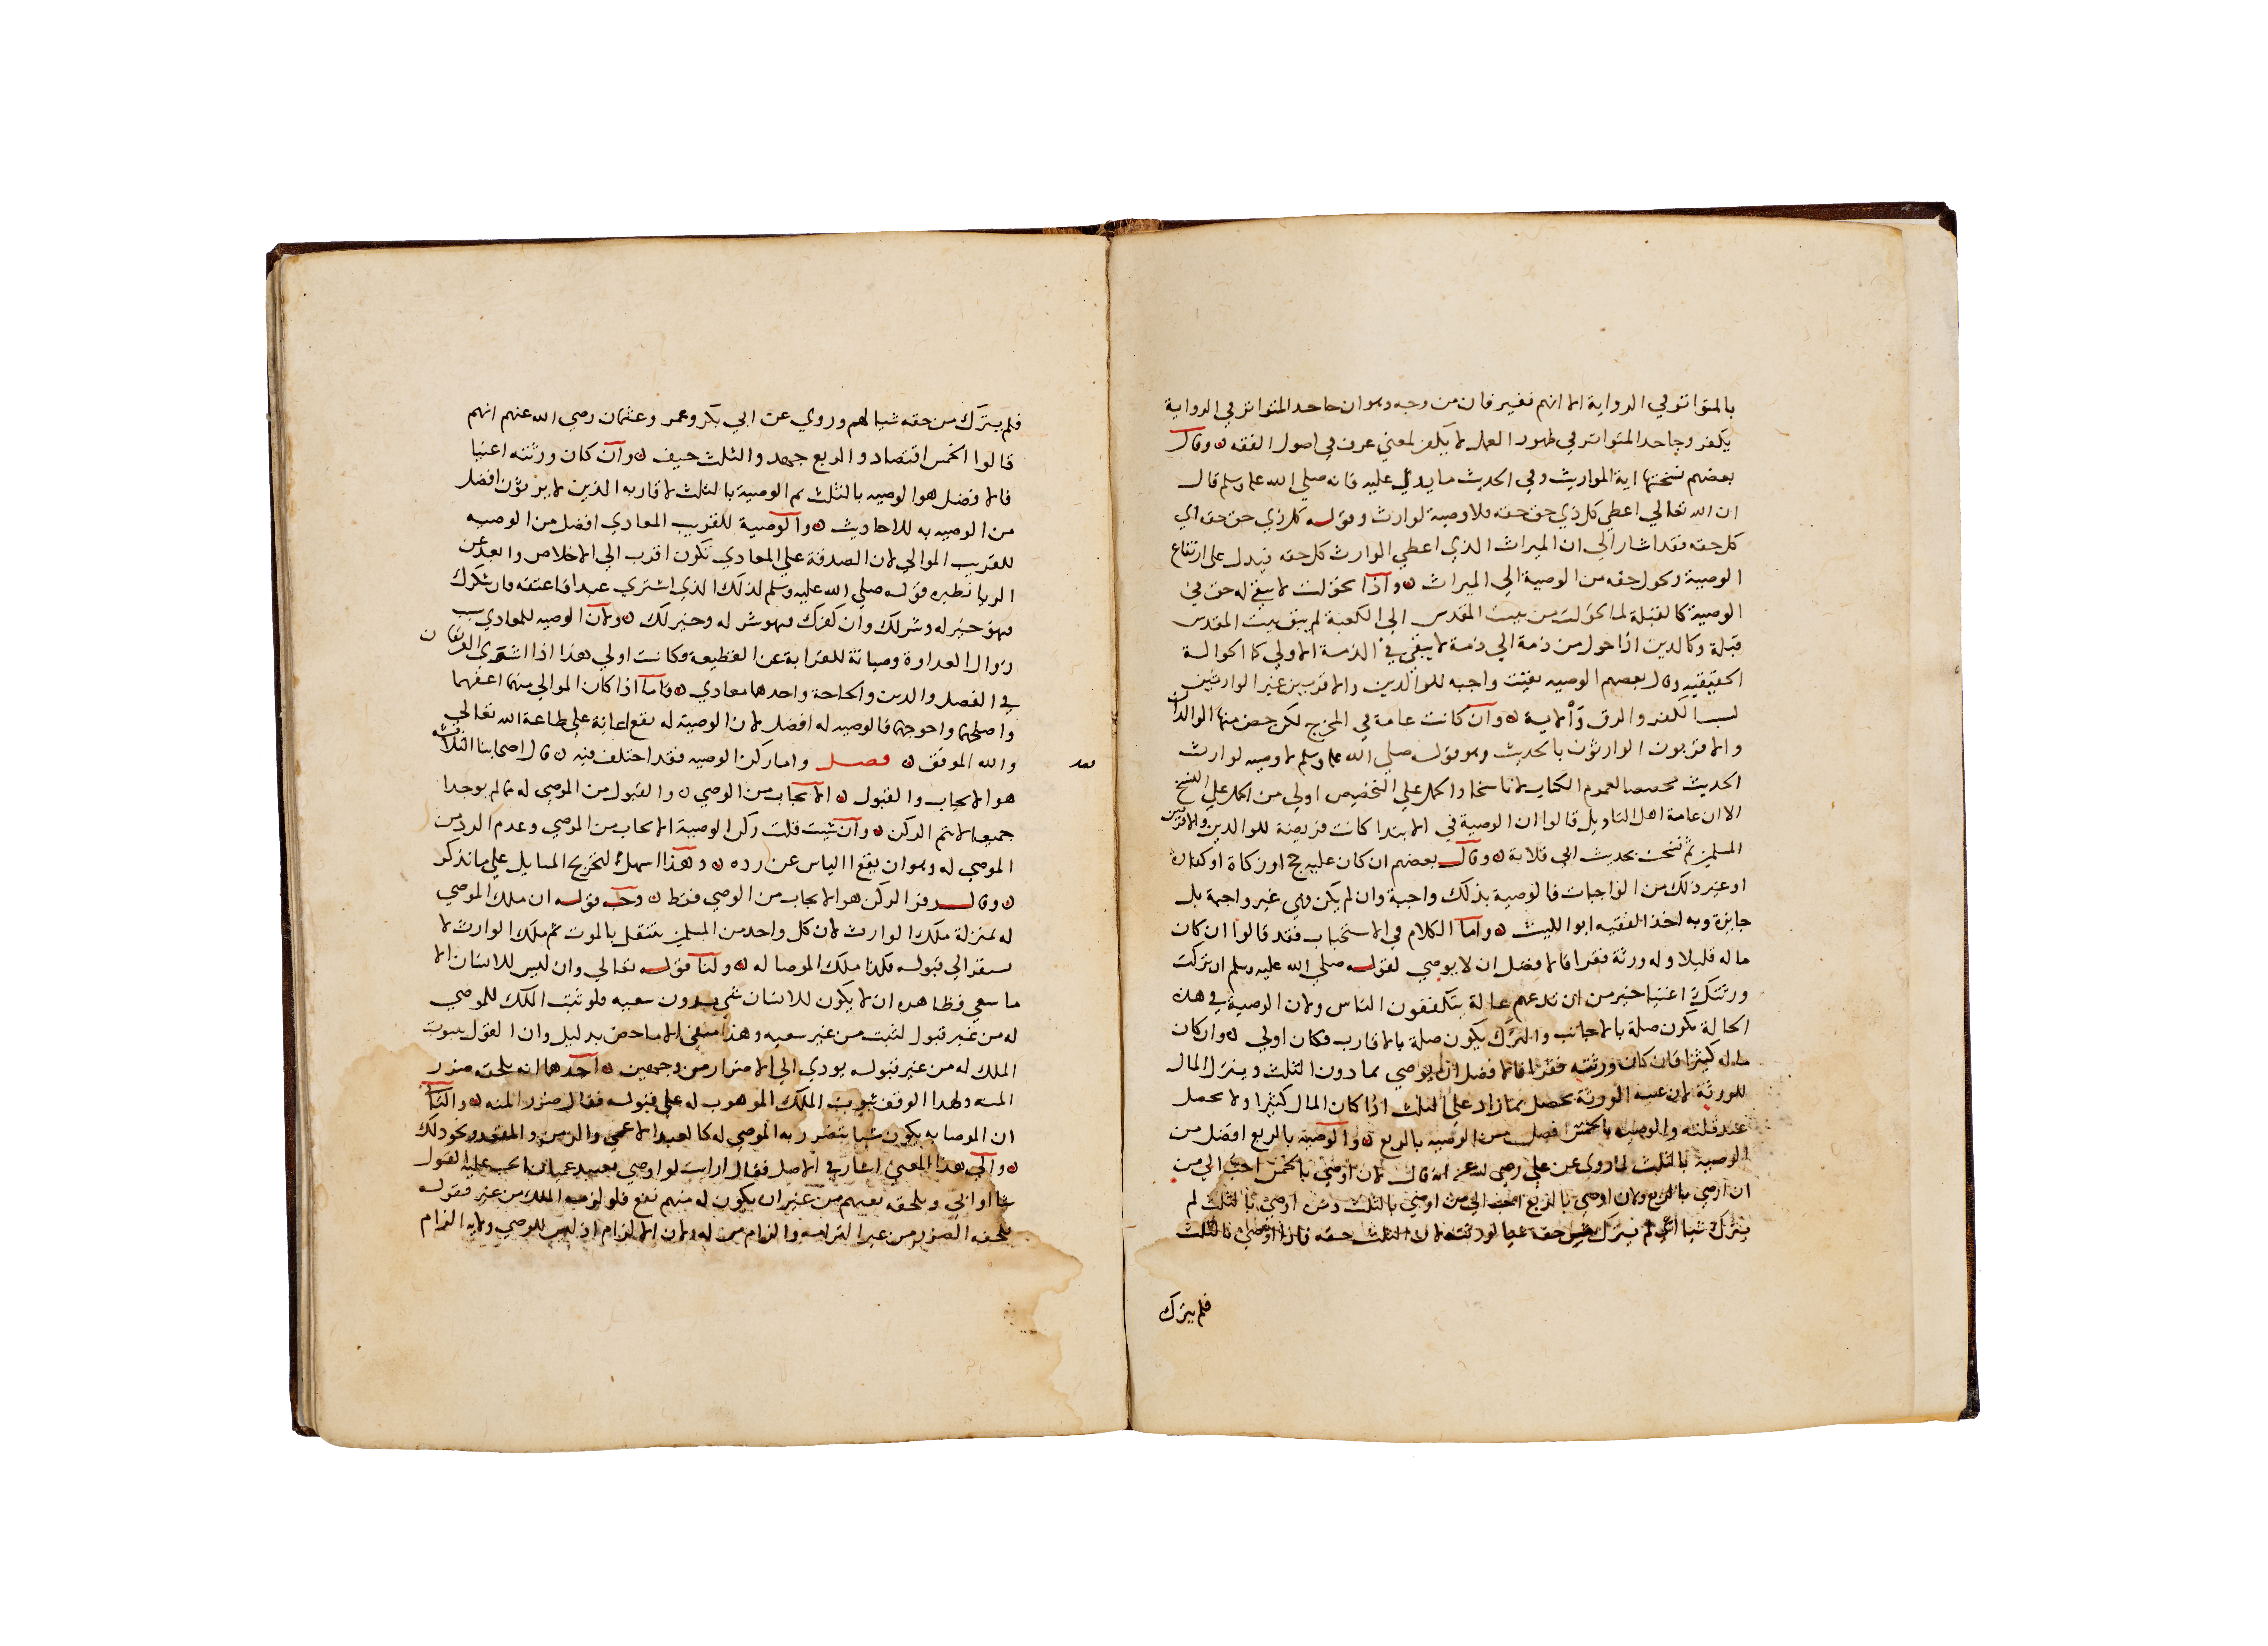 بالمتواتر في الرواية الا انهم نغير فان من وجه وهو ان جاحد المتواتر في الرواية
يكفر وجاحد المتواتر في ظهور العمل لا يكفر لمعني عرف في اصول الفقه ن وقال
بعضهم نسختها اية المواريث وفي الحديث ما يدل عليه فانه صلي الله عليه وسلم قال
ان الله تعالي اعطي كل ذي حق حقه فلا وصية لوارث وقوله كل ذي حق حقه اي
كل حقه فقد اشار الي ان الميراث الذي اعطي الوارث كل حقه فيدل علي ارتفاع
الوصية وتحول حقه من الوصية الي الميراث ن واذا تحولت لا يبقي له حق في
الوصية كالقبلة لما تحولت من بيت المقدس الي الكعبة لم يبق بيت المقدس
قبلة وكالدين اذا حول من ذمة الي ذمة لا يبقي في الذمة الاولي كما الحوالة
الحقيقيه وقال بعضهم الوصيه بقيت واجبه للوالدين والاقربين غير الوارثين
لسبب الكفر والرق والاية ن وان كانت عامة في المخرج لكن خص منها الوالدان
والاقربون الوارثون بالحديث وهو قوله صلي الله عليه وسلم لا وصيه لوارث
الحديث مخصصا لعموم الكتاب لا ناسخا والحمل علي التخصيص اولي من الحمل علي النسخ
الا ان عامة اهل التاويل قالوا ان الوصية في الابتدا كانت فريضة للوالدين والاقربين
المسلمين ثم نسخت بحديث ابي قلابة ن وقال بعضهم ان كان عليه حج او زكاة او كفارة
او غير ذلك من الواجبات فالوصية بذلك واجبة وان لم يكن فهي غير واجبة بل
جايزة وبه اخذ الفقيه ابو الليث ن واما الكلام في الاستحباب فقد قالوا ان كان
ماله قليلا وله ورثة فقرا فالافضل ان لا يوصي لقوله صلي الله عليه وسلم ان تركت
ورثتك اغنيا خير من ان تدعهم عالة يتكففون الناس ولان الوصية في هذه
الحالة تكون صلة بالاجانب والترك يكون صلة بالاقارب فكان اولي ن وان كان
ماله كثيرا فان كان ورثته فقرا فالافضل ان يوصي بما دون الثلث ويترك المال
للورثة لان غنية الورثة تحصل بما زاد علي الثلث اذا كان المال كثيرا ولا تحصل
عند قلته والوصيه بالخمس افضل من الوصيه بالربع ن والوصية بالربع افضل من
الوصية بالثلث لما روي عن علي رضي الله عنه انه قال لان اوصي بالخمس احب الي من
ان اوصي بالربع ولان اوصي بالربع احب الي من اوصي بالثلث ومن اوصي بالثلث لم
يترك شيا اي لم يترك من حقه شيا لورثته لان الثلث حقه فاذا اوصي بالثلث
فلم يترك
فلم يترك من حقه شيا لهم وروي عن ابي بكر وعمر وعثمان رضي الله عنهم انهم
قالوا الخمس اقتصاد والربع جهد والثلث حيف ن وان كان ورثته اغنيا
فالافضل هو الوصيه بالثلث ثم الوصية بالثلث لاقاربه الذين لا يرثون افضل
من الوصيه به للاحاديث ن والوصية للقريب المعادي افضل من الوصيه
للقريب الموالي لان الصدقة علي المعادي تكون اقرب الي الاخلاص وابعد عن
الريا نظيره قوله صلي الله عليه وسلم لذلك الذي اشتري عبدا فاعتقه فان شكرك
فهو خير له وشر لك وان كفرك فهو شر له وخير لك ن ولان الوصيه للمعادي سبب
زوال العداوة وصيانة للقرابة عن القطيعة فكانت اولي هذا اذا استوي الفريقان
في الفضل والدين والحاجة واحدهما معادي ن فاما اذا كان الموالي منهما اعفهما
واصلحهما واحوجهما فالوصيه له افضل لان الوصية له تقع اعانة علي طاعة الله تعالي
والله الموفق ن فصل واما ركن الوصيه فقد اختلف فيه ن قال اصحابنا الثلاثه
هو الايجاب والقبول ن الايجاب من الوصي ن والقبول من الموصي له فما لم يوجدا
جميعا لا يتم الركن ن وان شيت قلت ركن الوصية الايجاب من الموصي وعدم الرد من
الموصي له وهو ان يقع الياس عن رده ن وهذا اسهل لتخريج المسايل علي ما نذكر
ن وقال زفر الركن هو الايجاب من الوصي فقط ن وجه قوله ان ملك الموصي
له بمنزلة ملك الوارث لان كل واحد من الملكين ينتقل بالموت ثم ملك الوارث لا
يفتقر الي قبوله فكذا ملك الموصا له ن ولنا قوله تعالي وان ليس للانسان الا
ما سعي فظاهره ان لا يكون للانسان شي بدون سعيه فلو ثبت الملك للموصي
له من غير قبول لثبت من غير سعيه وهذا منفي الا ما خص بدليل وان القول بثبوت
الملك له من غير قبوله يودي الي الاضرار من وجهين ن احدهما انه يلحقه ضرر
المنه ولهذا الوقف ثبوت الملك الموهوب له علي قبوله فقال ضرر المنه ن والثاني
ان الموصا به يكون شيا يتضرر به الموصي له كالعبد الاعمي والزمن والمقعد ونحو ذلك
ن والي هذا المعني اشار في الاصل فقال ارايت لو اوصي بعبيد عميان ايجب عليه القول
شا او ابي ويلحقه نفقتهم من غير ان يكون له منهم نفع فلو لزمه الملك من غير قبوله
يلحقه الضرر من غير التزامه والزام من له ولاية الالزام اذ ليس للموصي ولاية الزام